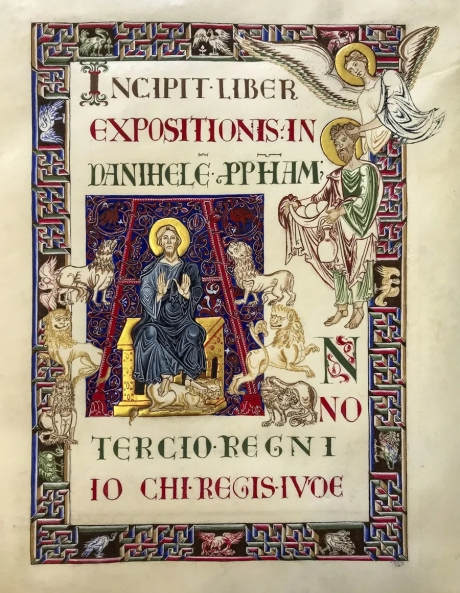 INCIPIT·LIBER
EXPOSITIONIS·IN
DANIHELE·PPHAM;
A N
NO
TERCIO·REGNI
IO CHI·REGIS·IVOE